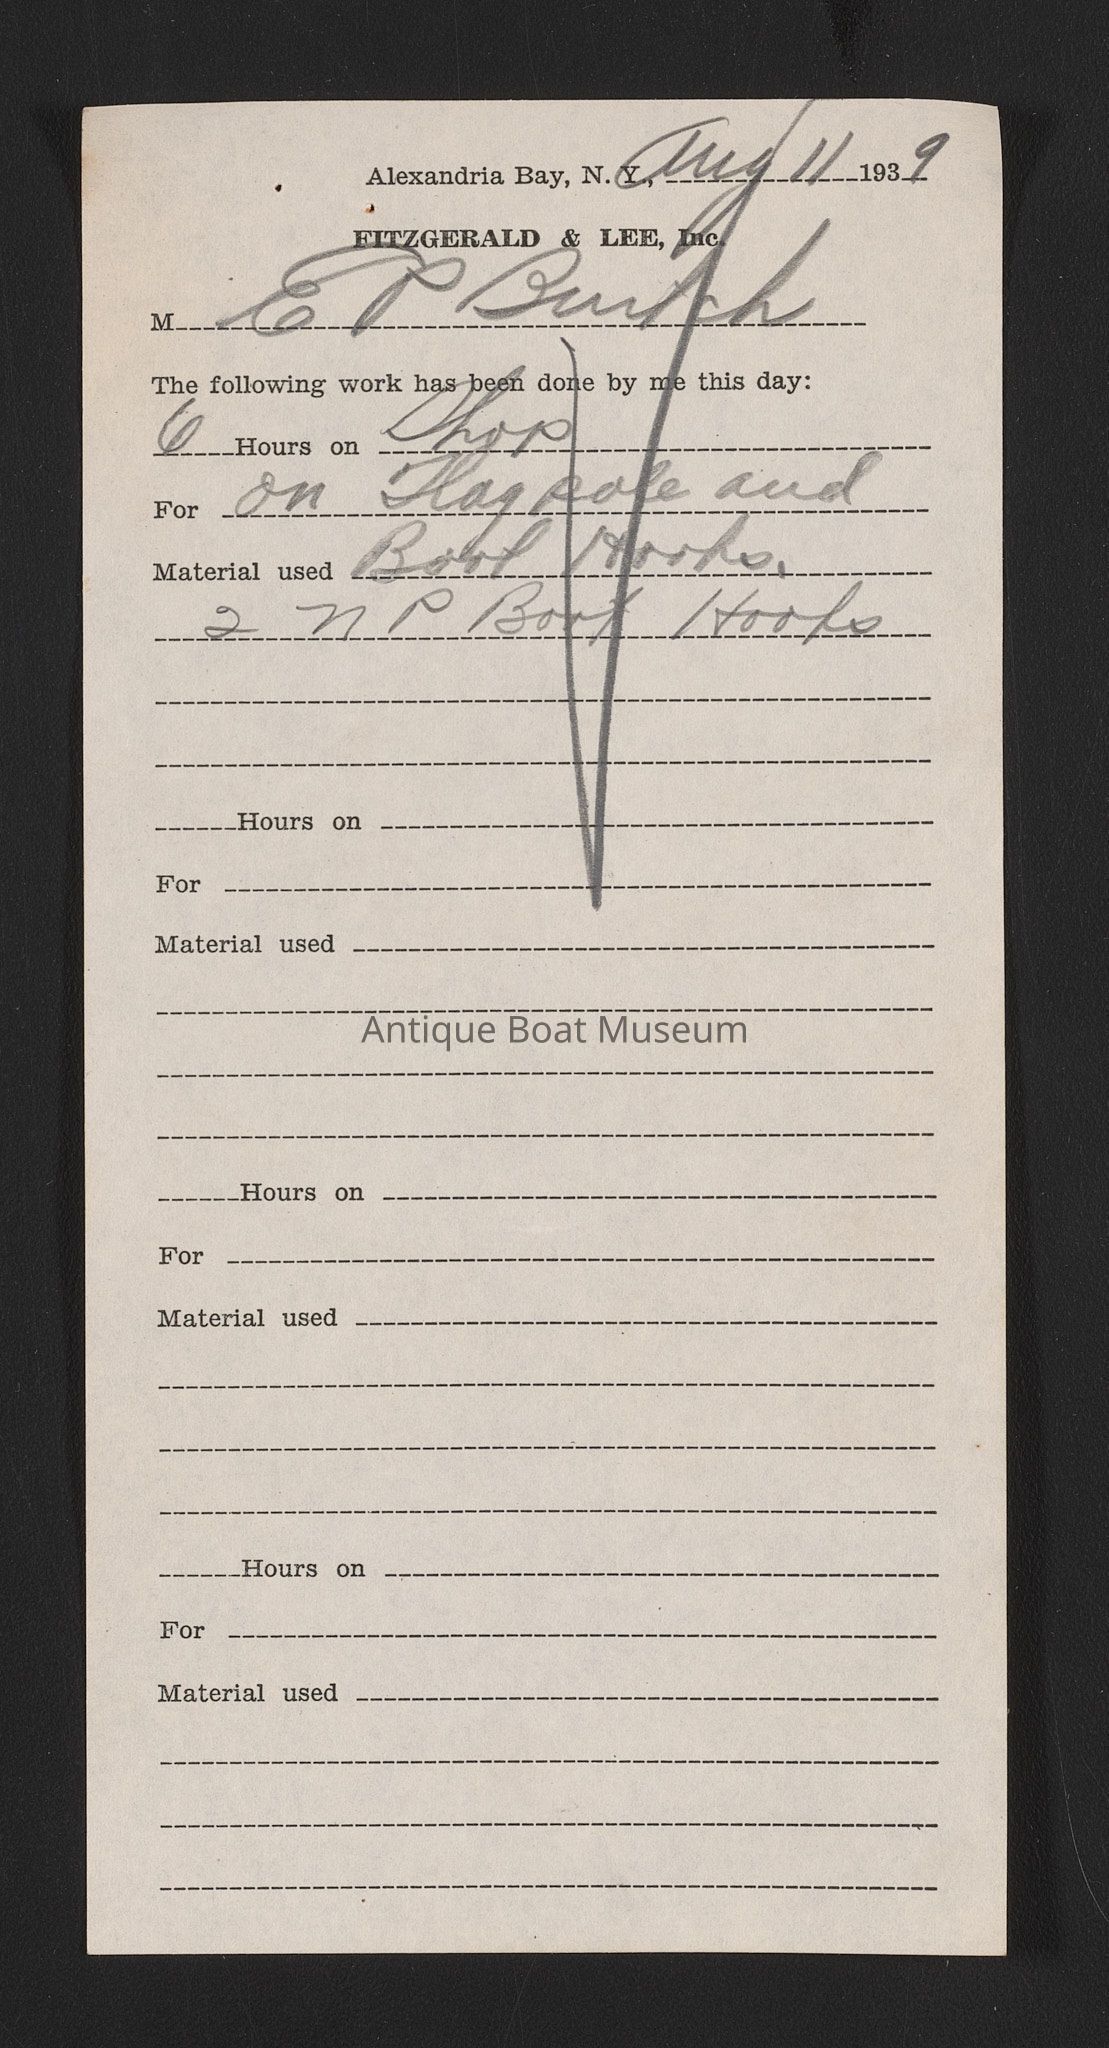 Alexandria Bay, N. Y., Aug 11 1939
FITZGERALD & LEE, Inc.
M E P Burtch
The following work has been done by me this day:
6 Hours on Shop
For on Flagpole and
Material used Boat Hooks.
2 N P Boat Hooks
Hours on
For
Material used
Antique Boat Museum
Hours on
For
Material used
Hours on
For
Material used